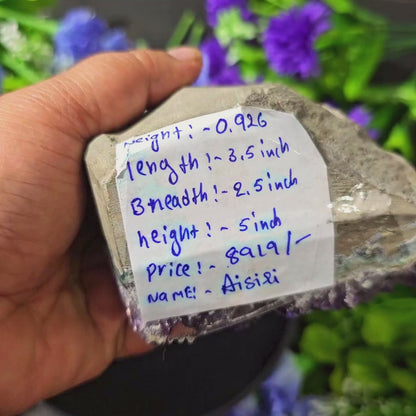 weight:- 0.926
length!- 3.5 inch
Breadth!- 2.5 inch
height!- 5 inch
price!- 8919/-
NAME!- Aisiri